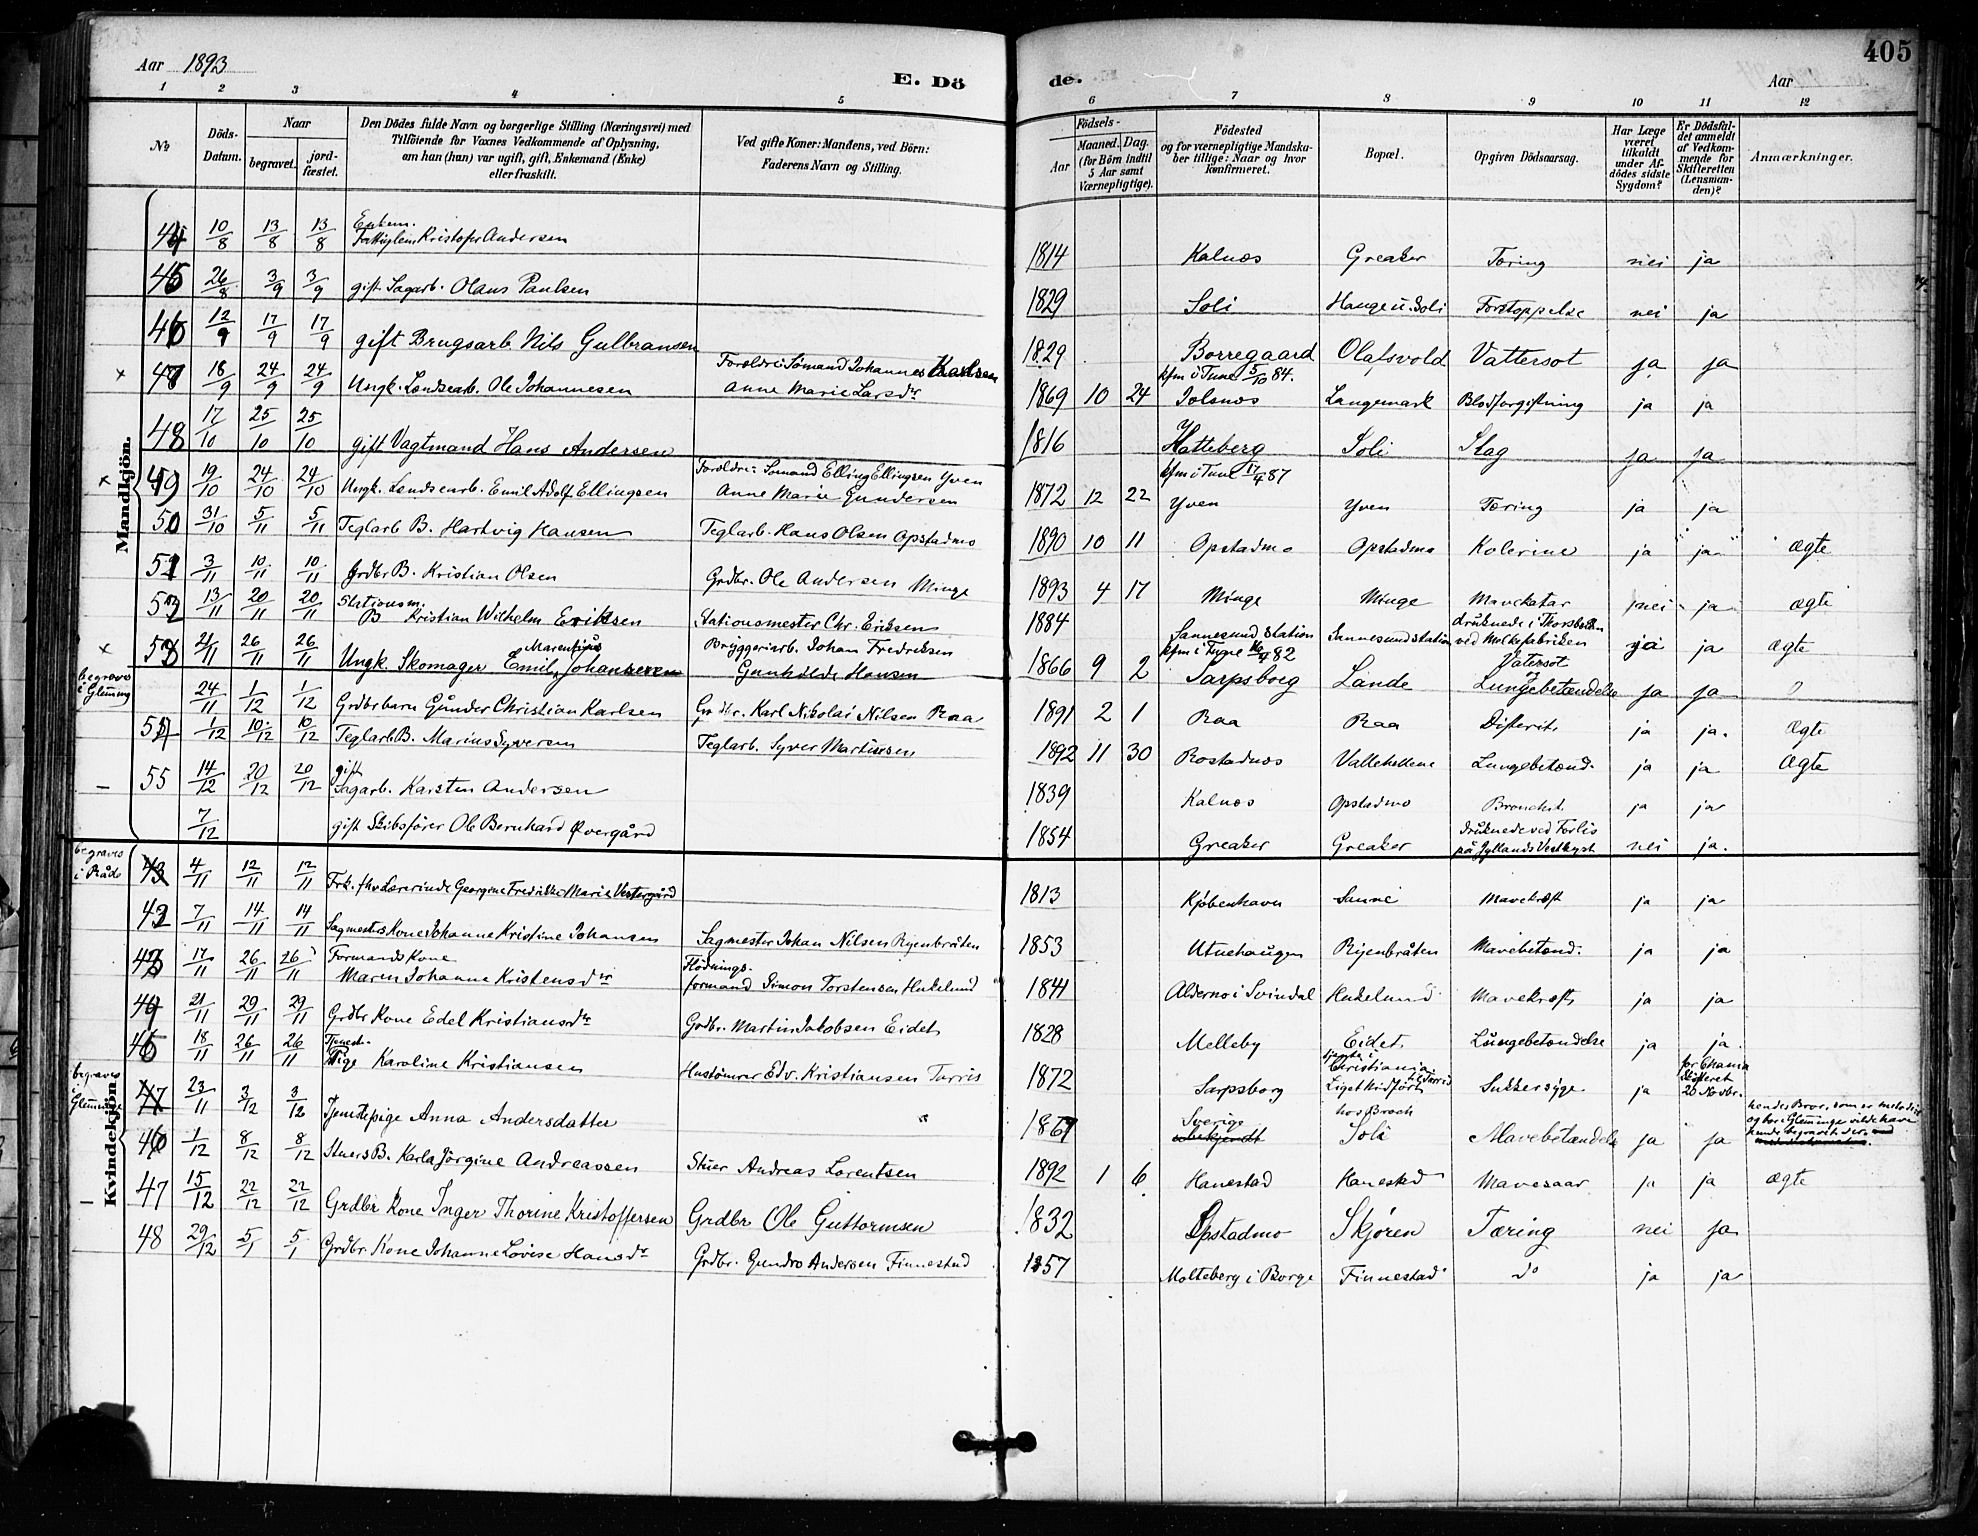 Aar 1893
E. Dö
de.
Aar
405
1 2 3 4 5 6 7 8 9 10 11 12
No
Döds-Datum.
Naar
begravet.
jord-fæstet.
Den Dödes fulde Navn og borgerlige Stilling (Næringsvei) med
Tilföiende for Voxnes Vedkommende af Oplysning,
om han (hun) var ugift, gift, Enkemand (Enke)
eller fraskilt.
Ved gifte Koner: Mandens, ved Börn:
Faderens Navn og Stilling.
Födsels-
Aar
Maaned. Dag.
(for Börn indtil
5 Aar samt
Værnepligtige).
Födested
og for værnepligtige Mandska-
ber tillige: Naar og hvor
konfirmeret.
Bopæl.
Opgiven Dödsaarsag.
Har Læge
været
tilkaldt
under Af-
dödes sidste
Sygdom?
Er Dödsfal-
det anmeldt
af Vedkom-
mende for
Skifteretten
(Lensman-
den)?
Anmærkninger.
Mandkjön.
44 10/8 13/8 13/8 Enkem. Fattiglem Kristofer Andersen 1814 Kalnæs Greaker Tæring nei ja
45 26/8 3/9 3/9 gift Sagarb. Olaus Paulsen 1829 Soli Hauge u. Soli Forstoppelse nei ja
46 12/9 17/9 17/9 gift Brugsarb. Nils Gulbransen 1829 Borregaard Olafsvold Vattersot ja ja
x 47 18/9 24/9 24/9 Ungk. Landsearb. Ole Johannesen Forældre: Sømand Johannes Karlsen
Anne Marie Larsdr 1869 10 24 kfm i Tune 5/10 84. Tolsnæs Langemark Blodforgiftning ja ja
48 17/10 25/10 25/10 gift Vagtmand Hans Andersen 1816 Hatteberg Soli Slag ja ja
x 49 19/10 24/10 24/10 Ungk. Landsearb. Emil Adolf Ellingsen Forældre: Sømand Elling Ellingsen Yven
Anne Marie Gundersen 1872 12 22 kfm i Tune 17/4 87 Yven Yven Tæring ja ja
50 31/10 5/11 5/11 Teglarb B. Hartvig Hansen Teglarb. Hans Olsen Opstadmo 1890 10 11 Opstadmo Opstadmo Kolerine ja ja ægte
51 3/11 10/11 10/11 Grdbr B. Kristian Olsen Grdbr. Ole Andersen Minge 1893 4 17 Minge Minge Mavekatar nei ja ægte
52 13/11 20/11 20/11 Stationsm. B Kristian Wilhelm Eriksen Stationsmester Chr. Eriksen 1884 Sannesund Station Sannesund Station druknede i
ved Molkefabriken ja ja ægte
x 53 21/11 26/11 26/11 Ungk. Skomager Emil Marentius Johansen Bryggeriarb. Johan Fredriksen
Gunhilde Hansen 1866 9 2 kfm i Tune 16/4 82 Sarpsborg Lande Vatersot og
Lungebetændelse ja ja
begraves i Glemmg 24/11 1/12 1/12 Grdbrbarn Gunder Christian Karlsen Grdbr. Karl Nikolai Nilsen Raa 1891 2 1 Raa Raa Difterit. ja ja. Ægte
54 1/12 10/12 10/12 Teglarb B. Marius Syversen Teglarb. Syver Martinsen 1892 11 30 Rostadnæs Vallehellene Lungebetænd. ja ja Ægte
– 55 14/12 20/12 20/12 gift Sagarb. Karsten Andersen 1839 Kalnæs Opstadmo Bronchit. ja ja
7/12 gift Skibsfører Ole Bernhard Øvergård 1854 Greaker Greaker druknede ved Forlis
på Jyllands Vestkyst nei ja.
Kvindekjön.
begraves i Råde 43 4/11 12/11 12/11 Frk. fhv Lærerinde Georgine Fredrikke Marie Vestergård 1813 Kjøbenhavn Sanne Mavekræft ja ja
42 7/11 14/11 14/11 Sagmesters Kone Johanne Kristine Johansen Sagmester Johan Nilsen Ryenbråten 1853 Utnehaugen Ryenbråten Mavebetænd. ja ja
43 17/11 26/11 26/11 Formands Kone
Maren Johanne Kristensdr Flødnings-
formand Simon Torstensen Hukelund 1841 Alderno i Svindal Hukelund Mavekræft ja ja
44 21/11 29/11 29/11 Grdbr Kone Edel Kristiansdr Grdbr. Martin Jakobsen Eidet 1828 Melleby Eidet. Lungebetændelse ja ja.
45 18/11 26/11 26/11 Tjeneste-
Pige Karoline Kristiansen Hustømrer Edv. Kristiansen Tarris 1872 Sarpsborg tjente i Christiania
Liget hidført til Tarris Sukkersyge ja for Chania
Skifteret
20 Novbr.
begraves i Glemminge 47 23/11 3/12 3/12 Tjenstepige Anna Andersdatter " 1867 Sverige
ubekjendt hos Broch
Soli Mavebetændelse ja ja hendes Bror, som er metodist
og bor i Glemminge vilde have
hende begravet der
46 1/12 8/12 8/12 Stuers B. Karla Jørgine Andreassen Stuer Andreas Lorentsen 1892 1 6 Hanestad Hanestad Mavesaar ja ja ægte
– 47 15/12 22/12 22/12 Grdbr Kone Inger Thorine Kristoffersen Grdbr Ole Guttormsen 1832 Opstadmo Skjøren Tæring nei ja
48 29/12 5/1 5/1 Grdbr. Kone Johanne Lovise Hansdr Grdbr. Gundro Andersen Finnestad 1857 Molteberg i Borge Finnestad do ja ja